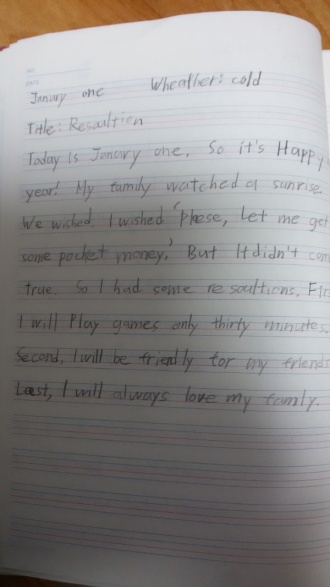 Janury one Wheather: cold
Title: Resaultion
Today is Janury one. So it's Happy
year! My family watched a sunrise.
We wished. I wished 'please, Let me get
some pocket money.' But It didn't com
true. So I had some resaultions. Fir
I will Play games only thirty minutes.
Second, I will be friendly for my friends
Last, I will always love my family.